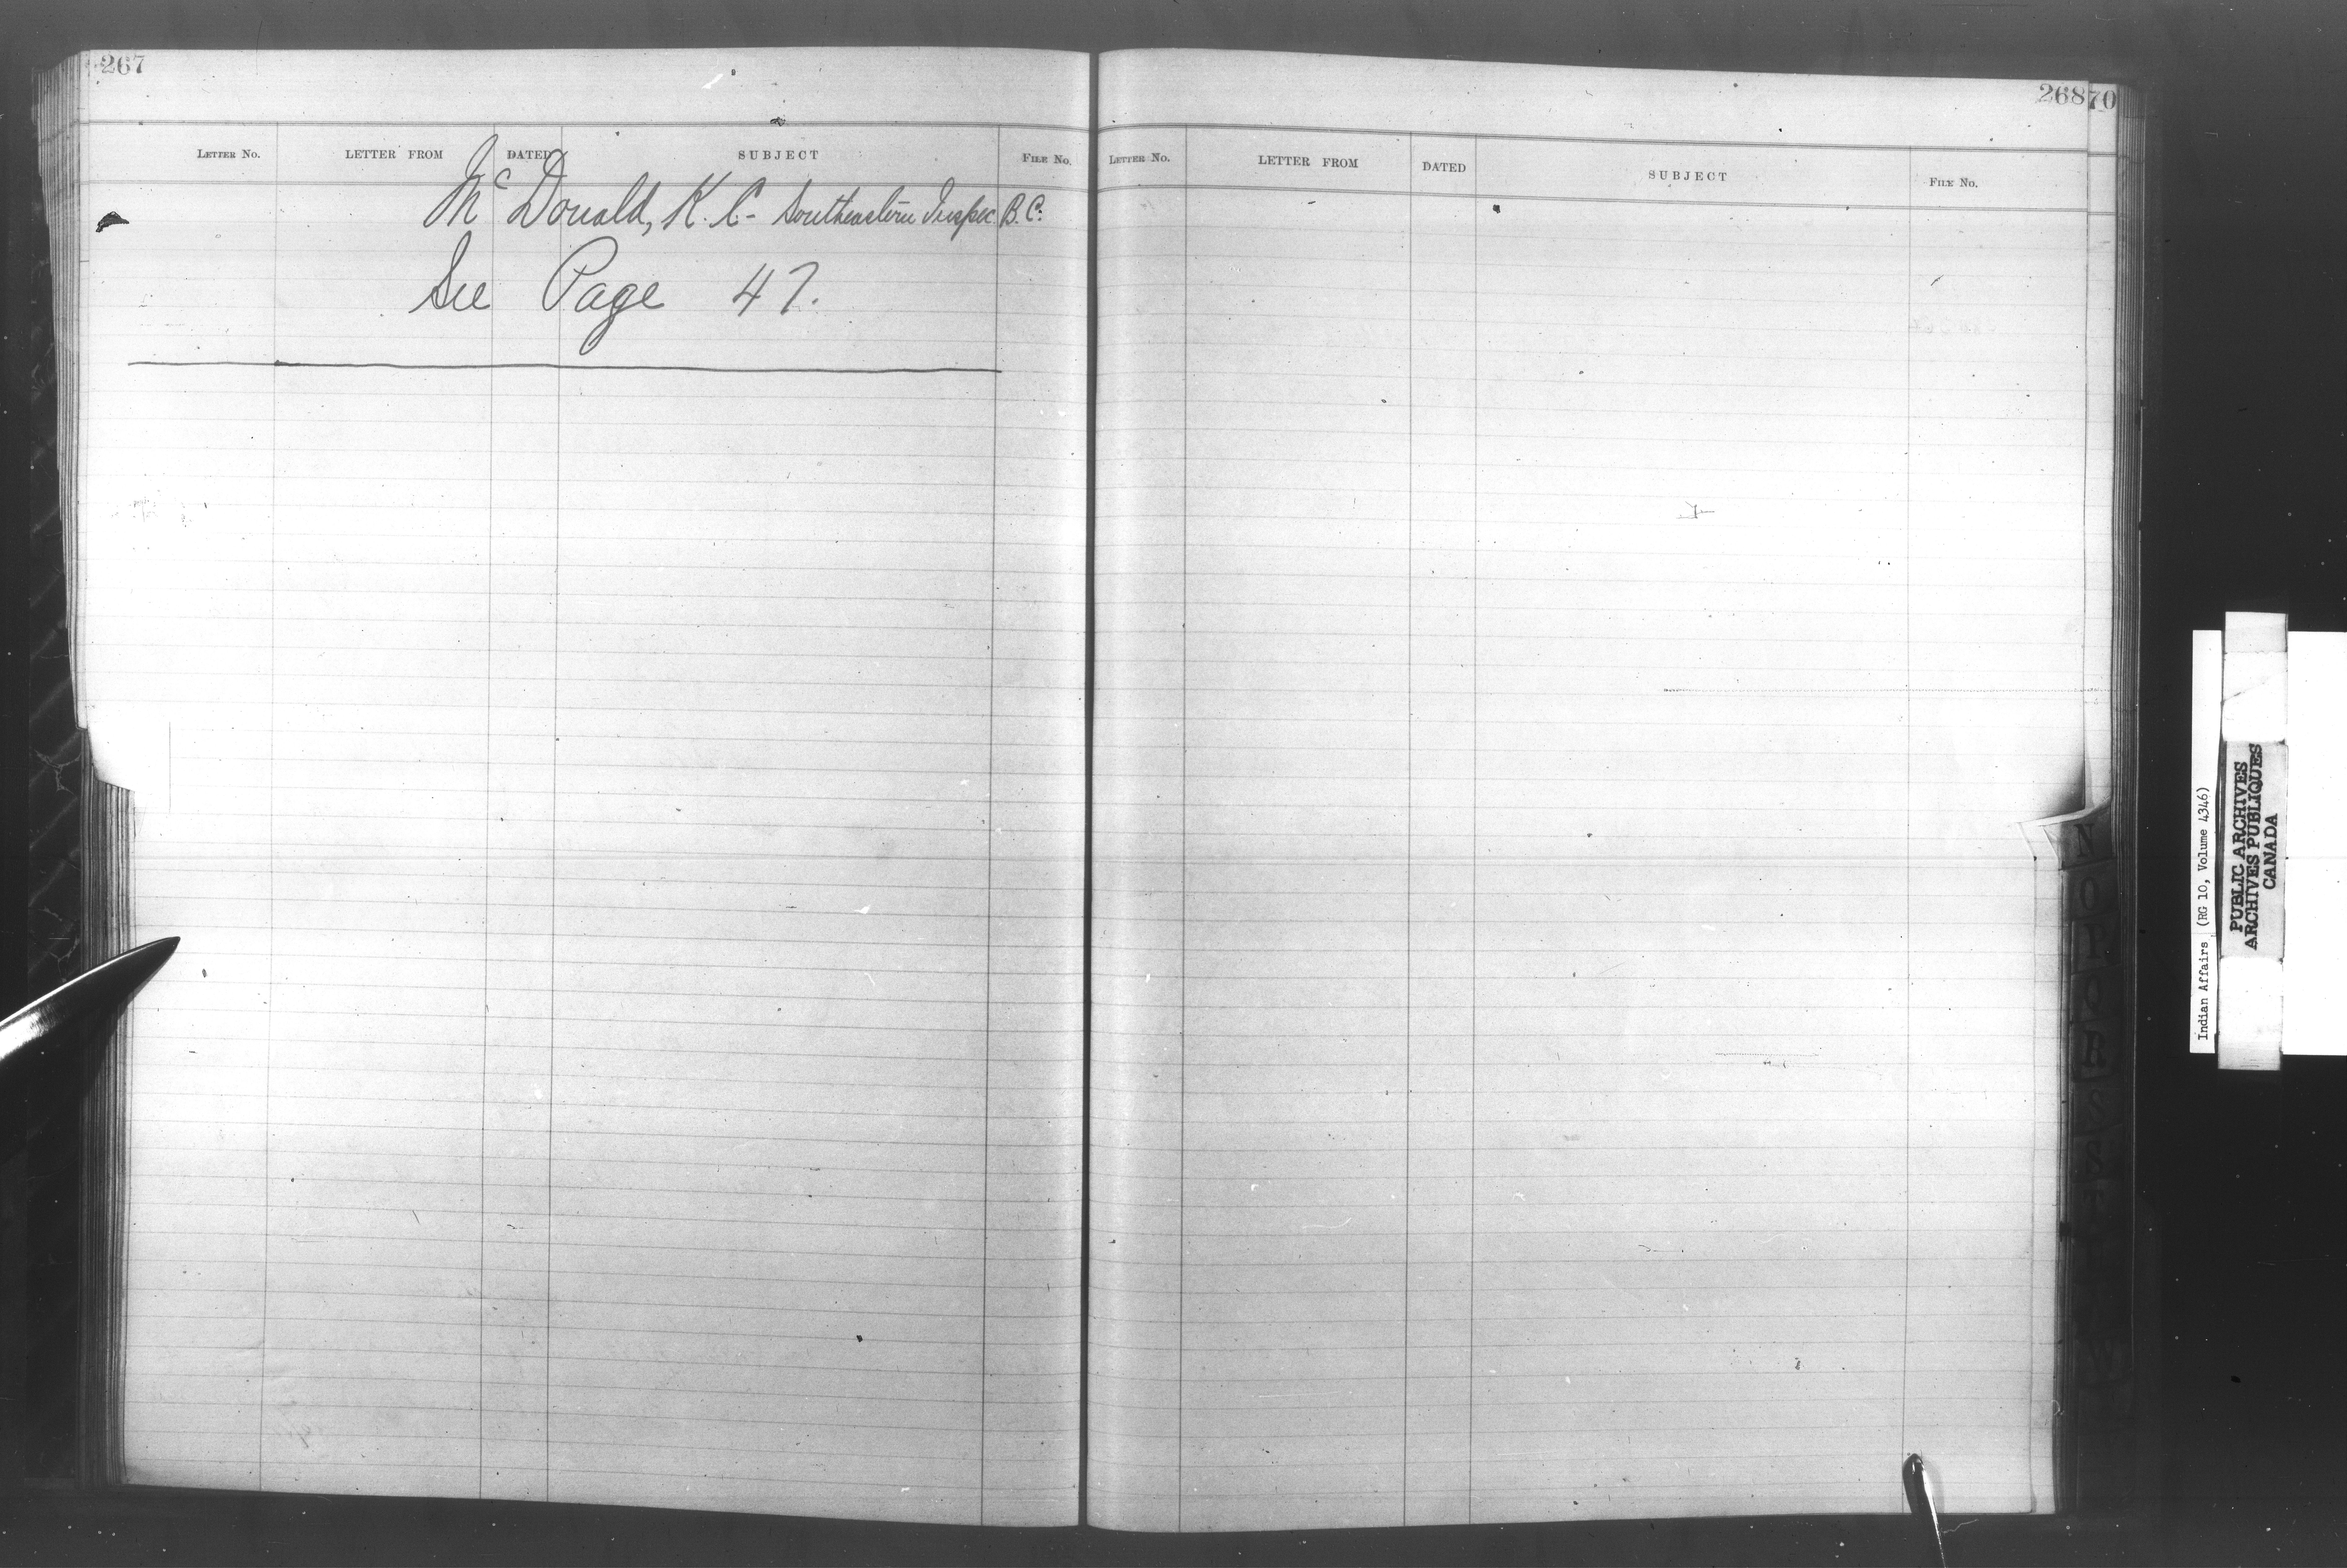 267
LETTER No. LETTER FROM DATED SUBJECT FILE No.
McDonald, K. C. - Southeastern Inspec. B.C.
See Page 47.
268 70
LETTER No. LETTER FROM DATED SUBJECT FILE No.
N
O
Indian Affairs (RG 10, Volume 4346)
PUBLIC ARCHIVES
ARCHIVES PUBLIQUES
CANADA